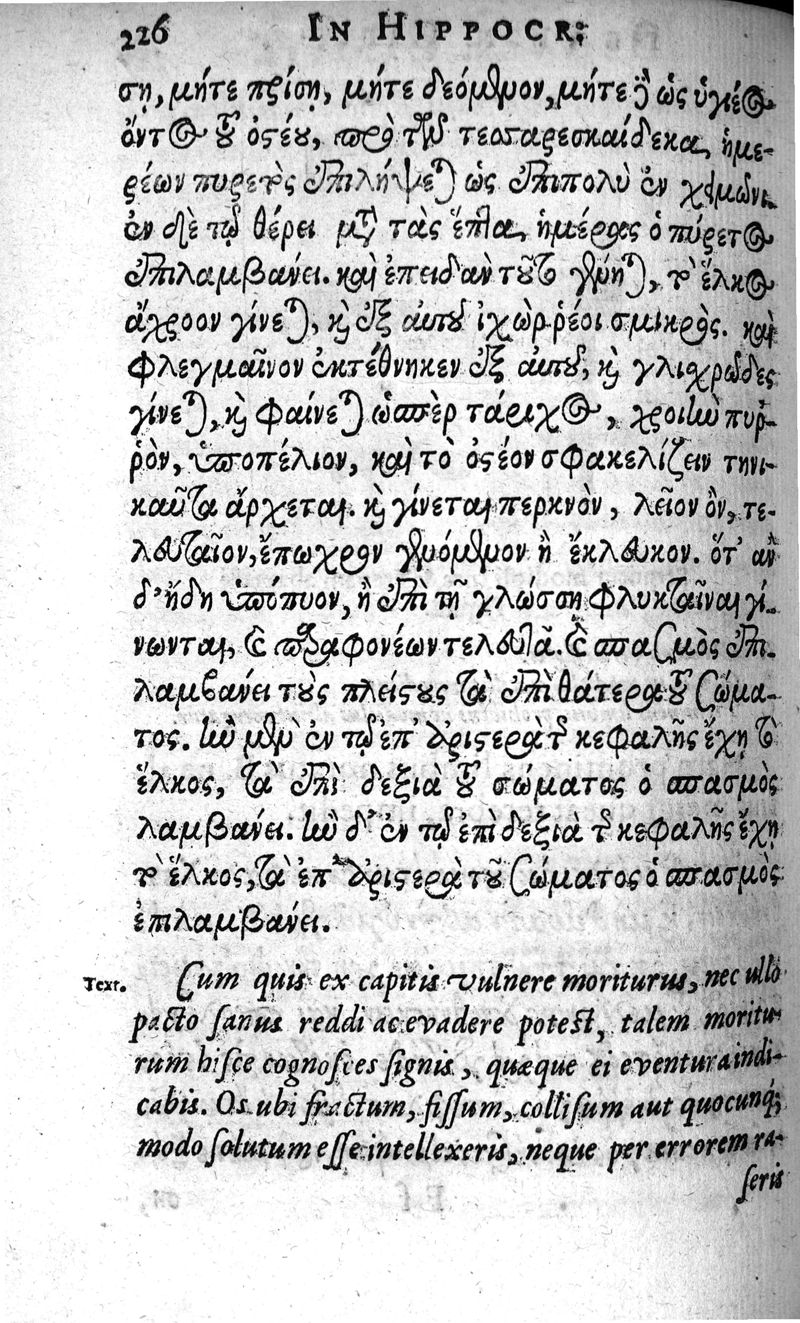 226 IN HIPPOCR:
ση, μήτε πρίση, μήτε δεόμενον, μήτε γε ὡς ὑγιέος
ὄντος τοῦ ὀστέου, πρὸ τῶν τεσσαρεσκαίδεκα ἡμε-
ρέων πυρετὸς ἐπιλήψεται ὡς ἐπιπολὺ ἐν χειμῶνι.
ἐν δὲ τῷ θέρει μετὰ τὰς ἕπτα, ἡμέρας ὁ πύρετος
ἐπιλαμβάνει. καὶ ἐπειδὰν τοῦτο γένηται, τὸ ἕλκος
ἄχροον γίνεται, καὶ ἐξ αὐτοῦ ἰχὼρ ῥέοι σμικρὸς. καὶ
φλεγμαῖνον ἐκτέθνηκεν ἐξ αὐτοῦ, καὶ γλιχρῶδες
γίνεται, καὶ φαίνεται ὥσπερ τάριχος, χροιὴν πυῤ-
ῥὸν, ὑποπέλιον, καὶ τὸ ὀστέον σφακελίζειν τηνι-
καῦτα ἄρχεται. καὶ γίνεται περκνὸν, λεῖον ὂν, τε-
λευταῖον, ἔπωχρον γενόμενον ἢ ἔκλευκον. ὅτ' ἂν
δ' ἤδη ὑπόπυον, ἢ ἐπὶ τῇ γλώσσῃ φλυκταῖναι γί-
νωνται, καὶ παραφονέων τελευτᾶ. καὶ σπασμὸς ἐπι-
λαμβάνει τοὺς πλείστους τὰ ἐπὶ θάτερα τοῦ σώμα-
τος. ἢν μὲν ἐν τῷ ἐπ' ἀριστερὰ τῆς κεφαλῆς ἔχη τὸ
ἕλκος, τὰ ἐπὶ δεξιὰ τοῦ σώματος ὁ σπασμὸς
λαμβάνει. ἢν δ' ἐν τῷ ἐπὶ δεξιὰ τῆς κεφαλῆς ἔχη
τὸ ἕλκος, τὰ ἐπ' ἀριστερὰ τοῦ σώματος ὁ σπασμὸς
ἐπιλαμβάνει.
Text. Cum quis ex capitis vulnere moriturus, nec ullo
pacto sanus reddi ac evadere potest, talem moritu-
rum hisce cognosces signis, quæque ei eventura indi-
cabis. Os ubi fractum, fissum, collisum aut quocunq;
modo solutum esse intellexeris, neque per errorem ra-
seris